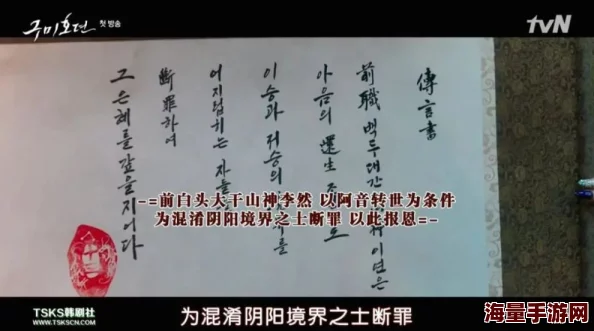 구미호뎐
첫 방송
tvN
傳言書
前職 백두대간
이염은
아음의 還生
이승과 저승의
를
어지럽히는 자를
斷罪하여
그 은혜를 갚을지어다
-=前白头大干山神李然 以阿音转世为条件
为混淆阴阳境界之士断罪 以此报恩=-
TSKS韩剧社
WWW.TSKSCN.COM
为混淆阴阳境界之士断罪
海量手游网